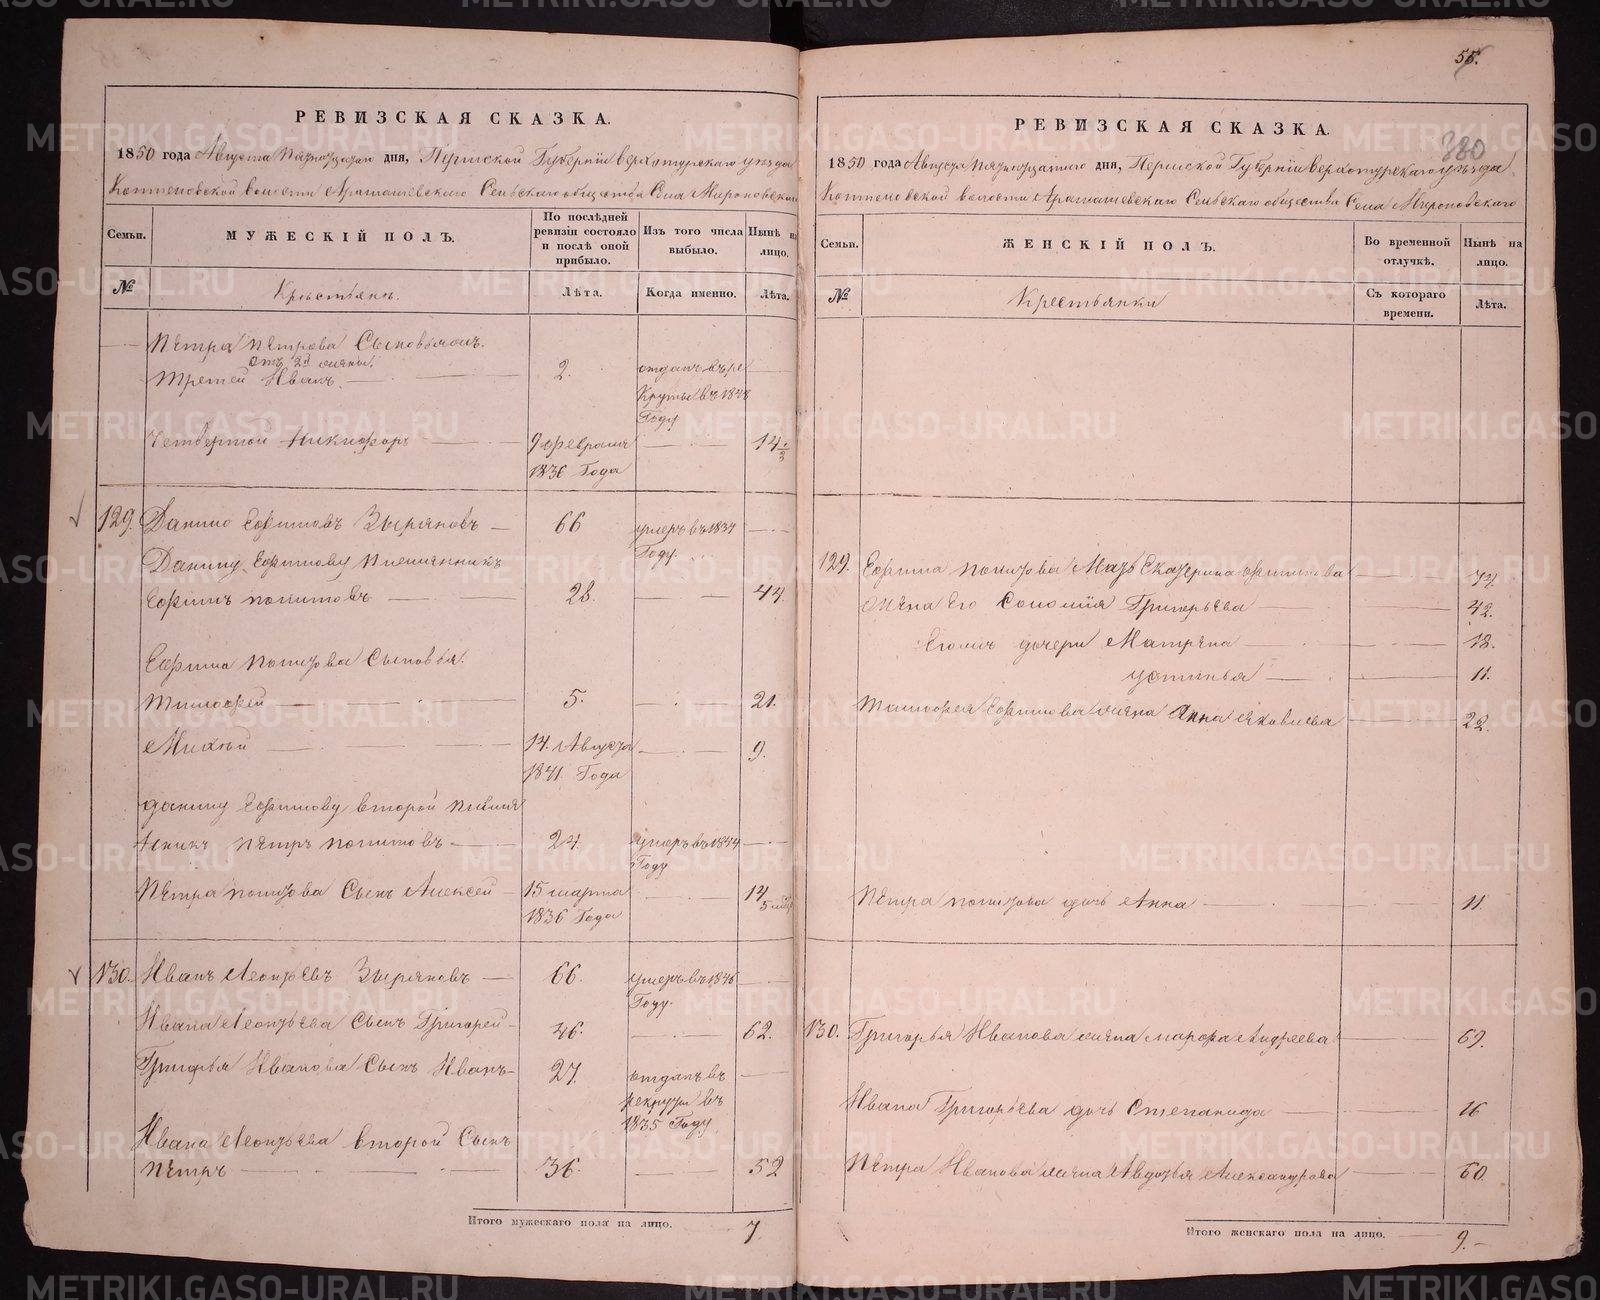 РЕВИЗСКАЯ СКАЗКА.
1850 года Августа пятнадцатаго дня, Пермской Губерніи Верхотурскаго уезда
Коптеловской волости Арамашевскаго Сельскаго общества Села Мироновскаго
Семьи.
МУЖЕСКІЙ ПОЛЪ.
По послѣдней ревизіи состояло и послѣ оной прибыло.
Изъ того числа выбыло.
Нынѣ на лицо.
№
Крестьянъ.
Лѣта.
Когда именно.
Лѣта.
Петра Петрова Сыновья
отъ 2й жены.
третей Иванъ
2.
отданъ въ ре
круты въ 1848
Году
Четвертой Никифоръ
9 февраля
14
1836 Года
129. Данило Ефимовъ Зыряновъ
66
умеръ въ 1837
Году.
Данилу Ефимову племянникъ
Ефимъ политовъ
28.
44.
Ефима политова Сыновья.
тимофей
5.
21.
Михей
14. Августа
9.
1841. Года
данилу Ефимову второй племя
нникъ петръ политовъ
24.
умеръ въ 1844
Году
Петра политова Сынъ Алексей
15 марта
14
1836 Года
130. Иванъ Леонтьевъ Зыряновъ
66.
умеръ въ 1846
Году.
Ивана Леонтьева Сынъ Григорей
46.
62.
Григорья Иванова Сынъ Иванъ
27.
отданъ въ
рекруты въ
1835 Году
Ивана Леонтьева второй Сынъ
петръ
36.
52
Итого мужескаго пола на лицо.
7.
55.
380
РЕВИЗСКАЯ СКАЗКА.
1850 года Августа Пятнадцатаго дня, Пермской Губерніи Верхотурскаго уезда
Коптеловской волости Арамашевскаго Сельскаго общества Села Мироновскаго
Семьи.
ЖЕНСКІЙ ПОЛЪ.
Во временной отлучкѣ.
Нынѣ на лицо.
№
Крестьянки
Съ котораго времени.
Лѣта.
129. Ефима политова Мать Екатерина
74.
жена его Соломия Григорьева
42.
Ихъ дочери Матрена
18.
устинья
11.
Тимофея Ефимова жена Анна Яковлева
22.
Петра политова дочь Анна
11.
130. Григорья Иванова жена марфа Андреева
69.
Ивана Григорьева дочь Степанида
16
Петра Иванова жена Авдотья Александрова
50.
Итого женскаго пола на лицо.
9.
METRIKI.GASO-URAL.RU